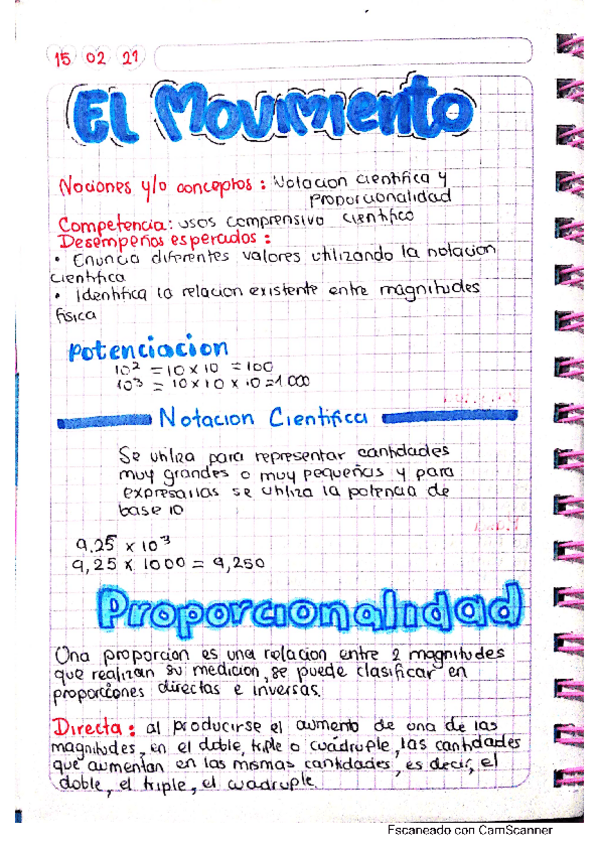 15 02 21
El Movimiento
Nociones y/o conceptos: Notacion cientifica y
proporcionalidad
Competencia: usos comprensivo cientifico
Desempeños esperados:
• Enuncia diferentes valores utilizando la notacion
cientifica
• Identifica la relacion existente entre magnitudes
fisica
Potenciacion
10² = 10 x 10 = 100
10³ = 10 x 10 x 10 = 1 000
Notacion Cientifica
Se utiliza para representar cantidades
muy grandes o muy pequeñas y para
expresarlas se utiliza la potencia de
base 10
9.25 x 10³
9,25 x 1000 = 9,250
Proporcionalidad
Una proporcion es una relacion entre 2 magnitudes
que realizan su medicion, se puede clasificar en
proporciones directas e inversas.
Directa: al producirse el aumento de una de las
magnitudes, en el doble, triple o cuadruple, las cantidades
que aumentan en las mismas cantidades, es decir, el
doble, el triple, el cuadruple.
Escaneado con CamScanner